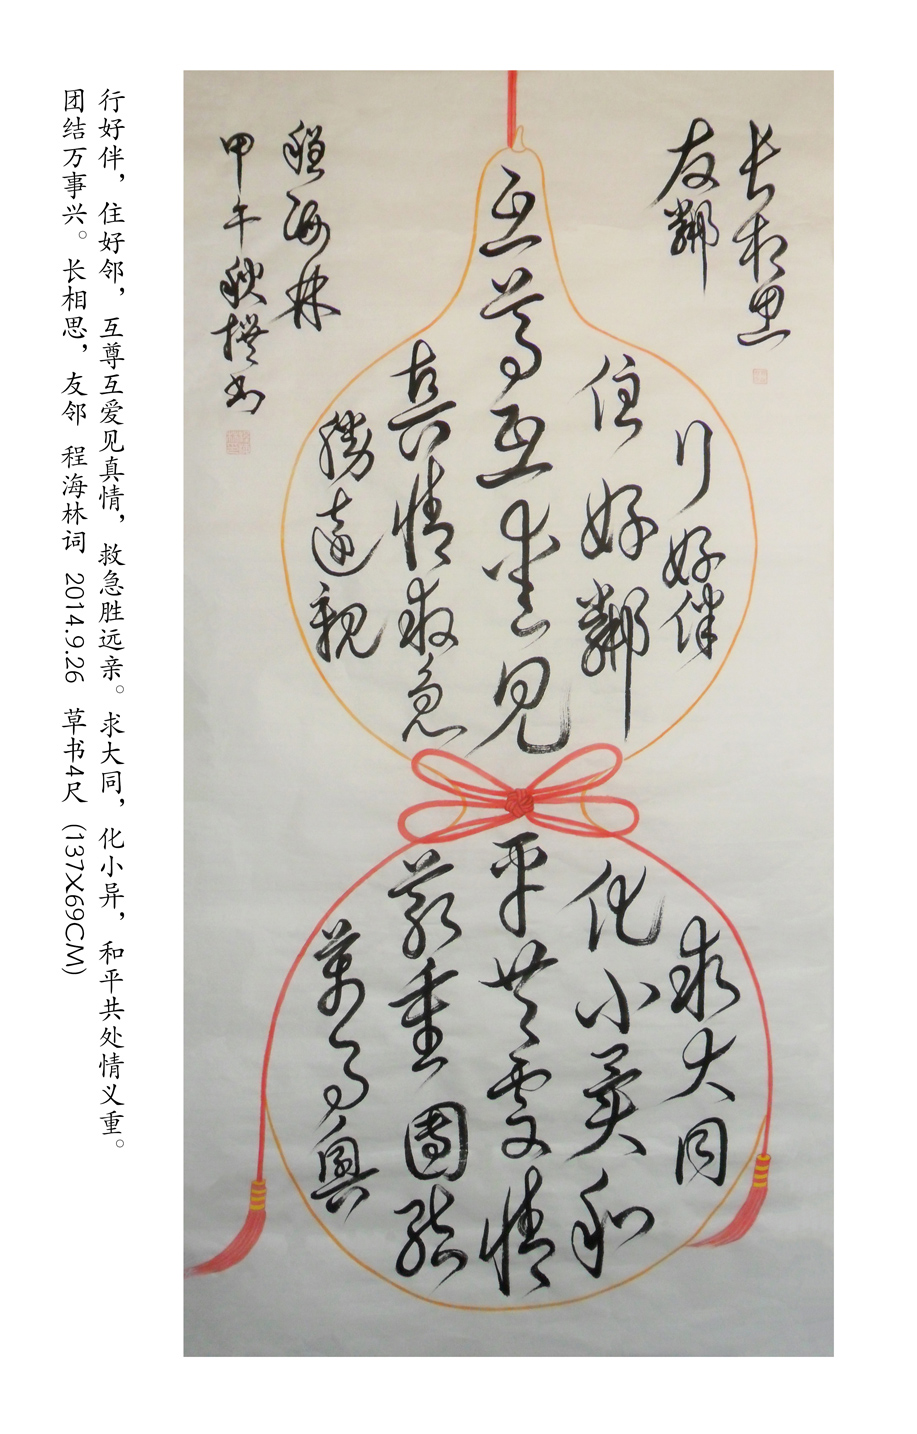 长相思
友鄰
行好伴
住好鄰
互尊互爱见
真情救急
勝遠親
求大同
化小異和
平共處情
義重團結
萬事興
程海林
甲午秋撰书
行好伴，住好邻，互尊互爱见真情，救急胜远亲。求大同，化小异，和平共处情义重。
团结万事兴。长相思，友邻 程海林词 2014.9.26 草书4尺 (137X69CM)